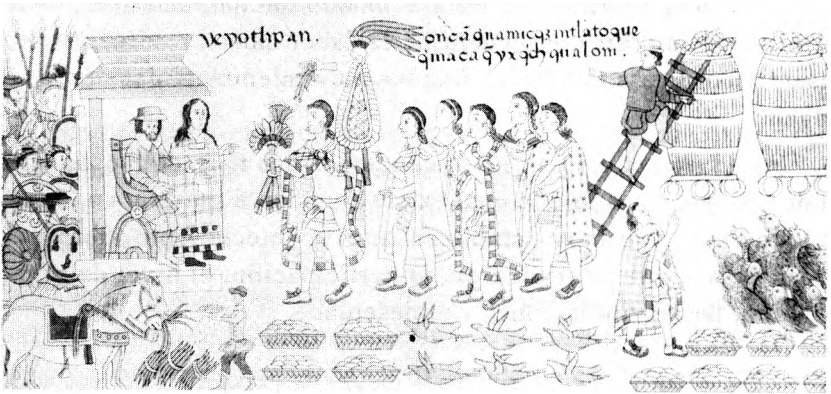 veyotlipan.
oncā qnamicqʒ intlatoque
qmacaq̄ yxq̄ch qualoni.